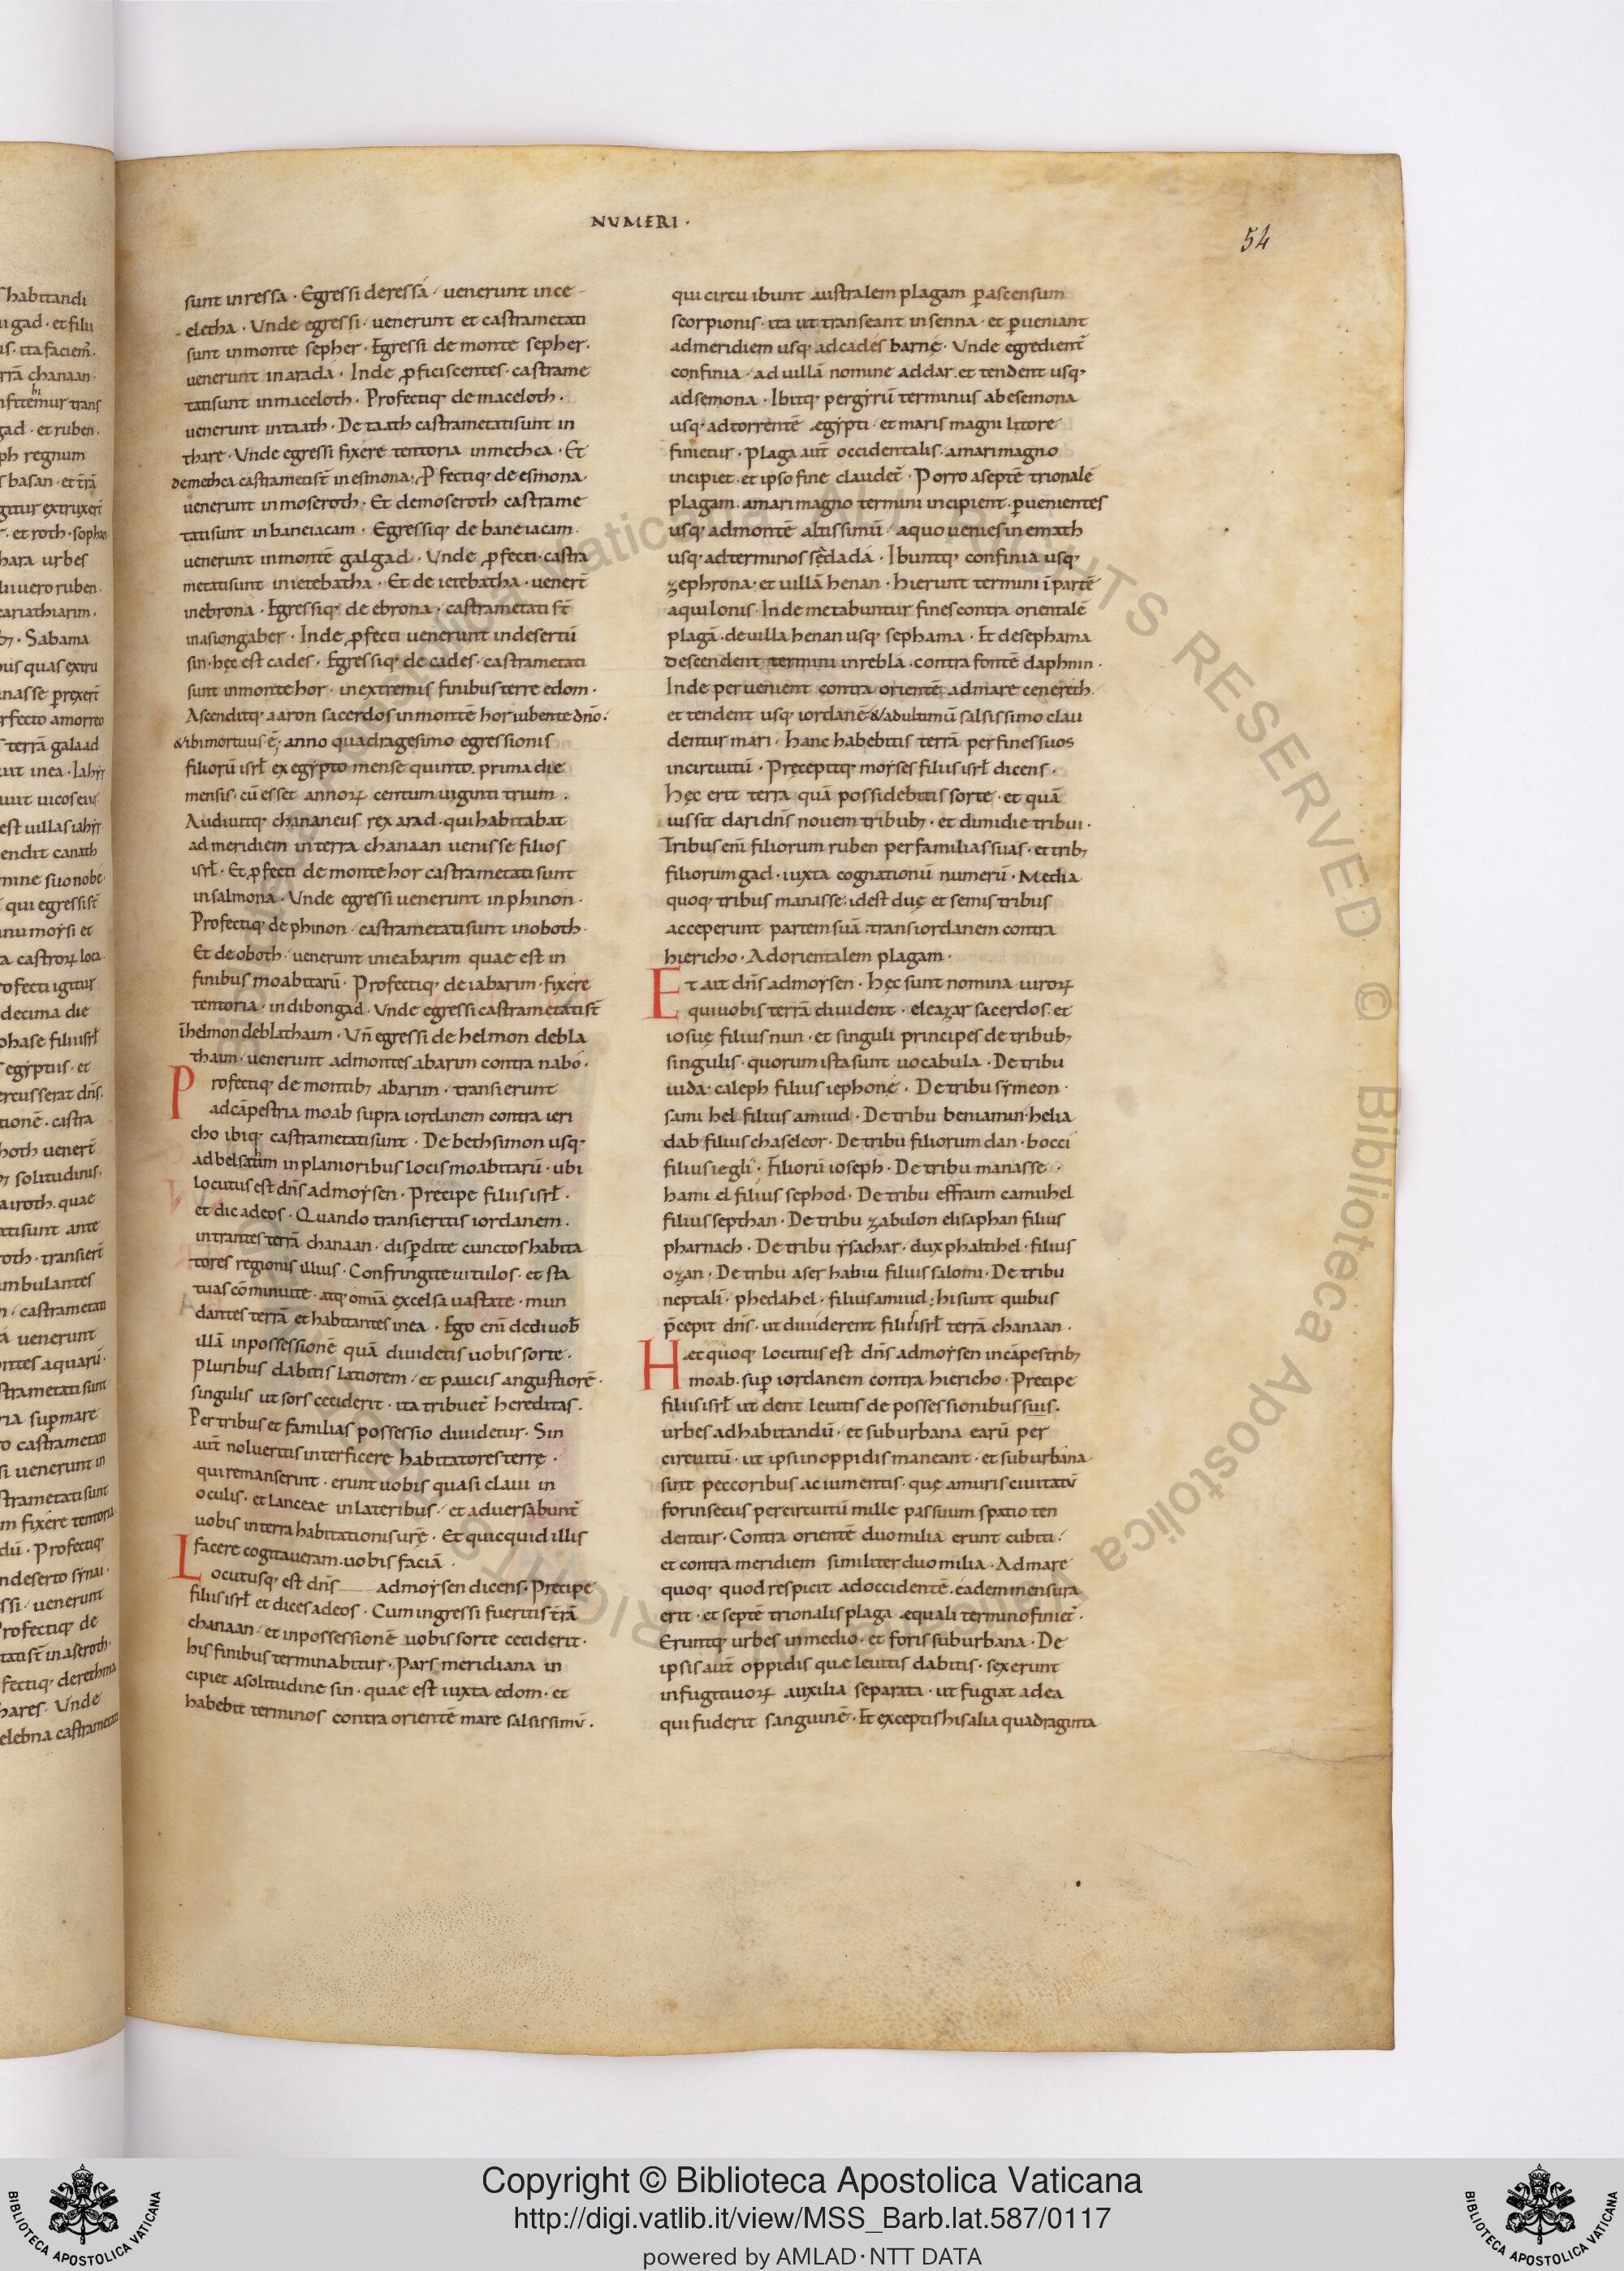 NUMERI ·
54
sunt inressa · Egressi deressa · uenerunt ince-
eletha · Unde egressi · uenerunt et castrametati
sunt inmonte sepher · Egressi de monte sepher ·
uenerunt inarada · Inde ꝓficiscentes · castrame
tatisunt inmaceloth · Profectiq; de maceloth ·
uenerunt intaath · De taath castrametatisunt in
thare · Unde egressi fixere tentoria inmethca · Et
demethca castrametist̄ in esmona · P̱fectiq; de esmona
uenerunt inmoseroth · Et demoseroth castrame
tatisunt inbaneiacam · Egressiq; de baneiacam ·
uenerunt inmontē galgad · Unde ꝓfecti · castra
metatisunt inietebatha · Et de ietebatha · uener̄t
inebrona · Egressiq; de ebrona · castrametati st̄
inasiongaber · Inde ꝓfecti uenerunt indesertū
sin · hęc est cades · Egressiq; de cades · castrametati
sunt inmontehor · inextremis finibus terre edom ·
Ascenditq; aaron sacerdos inmontē hor iubente dn̄o ·
& ibimortuus ē; anno quadragesimo egressionis
filiorū isrł ex egypto mense quinto · prima die
mensis · cū esset annoꝝ centum uiginti trium ·
Audiuitq; chananeus rex arad · quihabitabat
ad meridiem interra chanaan uenisse filios
isrł · Et ꝓfecti de montehor castrametatisunt
insalmona · Unde egressi uenerunt inphinon ·
Profectiq; de phinon · castrametatisunt inoboth ·
Et de oboth · uenerunt inieabarim quae est in
finibus moabitarū · Profectiq; de iabarim · fixere
tentoria · indibongad · Unde egressi castrametatist̄
īhelmon deblathaim · Un̄ egressi de helmon debla
thaim · uenerunt admontes abarim contra nabo ·
Profectiq; de montibꝫ abarim · transierunt
adcāpestria moab supra iordanem contra ieri
cho ibiq; castrametatisunt · De bethsimon usq;
adbelsatim inplanioribus locis moabitarū · ubi
locutus est dn̄s admoysen · Precipe filiis isrł ·
et dic adeos · Quando transieritis iordanem ·
intrantes terrā chanaan · disꝑdite cunctos habita
tores regionis illius · Confringite uitulos · et sta
tuas cōminuite · atq; omīa excelsa uastate · mun
dantes terrā et habitantes inea · Ego eni dediuob̄
illā inpossessionē quā diuidetis uobis sorte ·
Pluribus dabitis latiorem · et paucis angustiorē ·
singulis ut sors ceciderit · ita tribuet̄ hereditas ·
Per tribus et familias possessio diuidetur · Sin
aut̄ nolueritis interficere habitatores terrę ·
qui remanserint · erunt uobis quasi claui in
oculis · et lanceae inlateribus · et aduersabunt̄
uobis interra habitationis ur̄e · Et quicquid illis
facere cogitaueram · uobis faciā ·
Locutusq; est dn̄s admoysen dicens · Precipe
filiis isrł et dices adeos · Cum ingressi fueritis t̄rā
chanaan · et inpossessionē uobis sorte ceciderit ·
his finibus terminabitur · Pars meridiana in
cipiet asolitudine sin · quae est iuxta edom · et
habebit terminos contra orientē mare salsissimū ·
qui circu ibunt australem plagam ꝑ ascensum
scorpionis · ita ut transeant insenna · et ꝑueniant
admeridiem usq; adcades barne · Unde egredient̄
confinia · ad uillā nomine addar · et tendent usq;
adsemona · Ibitq; pergyrū terminus abesemona
usq; adtorrentē ęgypti · et maris magni litore
finietur · Plaga aut̄ occidentalis · amarimagno
incipiet · et ipso fine claudet̄ · Porro aseptē trionalē
plagam · amarimagno termini incipient · ꝑuenientes
usq; admontē altissimū · aquo uenies in emath
usq; adterminos sędada · Ibuntq; confinia usq;
zephrona · et uillā henan · hierunt termini ī partē
aquilonis · Inde metabuntur fines contra orientalē
plagā · deuilla henan usq; sephama · Et desephama
descendent termini inrebla · contra fontē daphnin ·
Inde peruenient contra orientē admare cenereth ·
et tendent usq; iordanē & adultimū salsissimo clau
dentur mari · hanc habebitis terrā per fines suos
incircuitū · Pręcepitq; moyses filiis isrł dicens ·
hęc erit terra quā possidebitis sorte · et quā
iussit dari dn̄s nouem tribubꝫ · et dimidie tribui ·
Tribus eni filiorum ruben per familias suas · et tribꝫ
filiorum gad · iuxta cognationū numerū · Media
quoq; tribus manasse · idest duę et semis tribus
acceperunt partem suā transiordanem contra
hiericho · Adorientalem plagam ·
Et ait dn̄s admoysen · hęc sunt nomina uiroꝝ
quiuobis terrā diuident · eleazar sacerdos · et
iosue filius nun · et singuli principes de tribubꝫ
singulis · quorum ista sunt uocabula · De tribu
iuda · caleph filius iephone · De tribu symeon ·
samuhel filius amiud · De tribu beniamin · helia
dab filius chaseleor · De tribu filiorum dan · bocci
filius iegli · Filiorū ioseph · De tribu manasse ·
hamiel filius sephod · De tribu effraim camuhel
filius septhan · De tribu zabulon elisaphan filius
pharnach · De tribu ysachar · dux phaltihel · filius
ozan · De tribu aser habiu filius salomi · De tribu
neptali · phedahel · filius amiud · hi sunt quibus
p̄cepit dn̄s · ut diuiderent filiis isrł terrā chanaan ·
Hęc quoq; locutus est dn̄s admoysen incāpestribꝫ
moab · suꝑ iordanem contra hiericho · Precipe
filiis isrł ut dent leuitis de possessionibus suis ·
urbes adhabitandū · et suburbana earū per
circuitū · ut ipsi in oppidis maneant · et suburbana
sint peccoribus ac iumentis · que amuris ciuitatū
forinsecus percircuitū mille passuum spatio ten
dentur · Contra orientē duomilia erunt cubiti ·
et contra meridiem similiter duomilia · Admare
quoq; quod respicit adoccidentē · eadem mensura
erit · et septē trionalis plaga ęquali termino finiet̄ ·
Eruntq; urbes inmedio · et foris suburbana · De
ipsis aut̄ oppidis que leuitis dabitis · sex erunt
infugitiuoꝝ auxilia separata · ut fugiat adea
qui fuderit sanguinē · Et exceptis his alia quadraginta
Copyright © Biblioteca Apostolica Vaticana
http://digi.vatlib.it/view/MSS_Barb.lat.587/0117
powered by AMLAD·NTT DATA
BIBLIOTECA APOSTOLICA VATICANA
BIBLIOTECA APOSTOLICA VATICANA